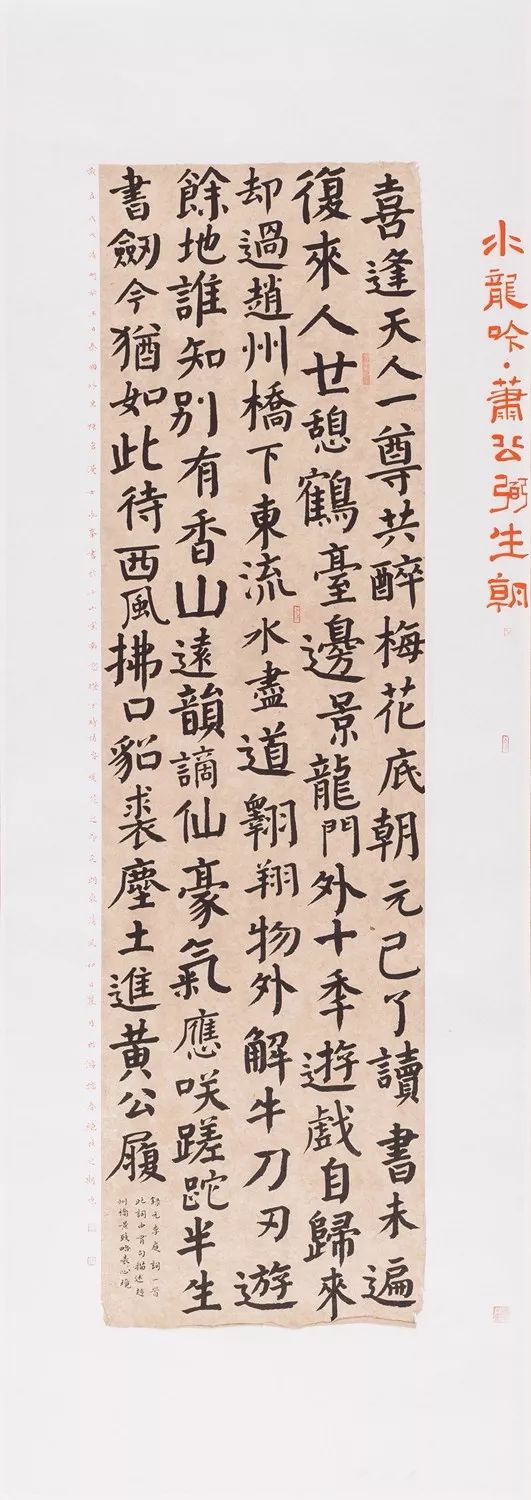 水龍吟·蕭公弼生朝
喜逢天人一尊共醉梅花底朝元已了讀書未遍
復來人世憩鶴臺邊景龍門外十年遊戲自歸來
却過趙州橋下東流水盡道翱翔物外解牛刀刃遊
餘地誰知別有香山遠韻謫仙豪氣應咲蹉跎半生
書劒今猶如此待西風拂口貂裘塵土進黃公履
錄元李庭詞一首
此詞中有句描述趙
州橋景致略表心境